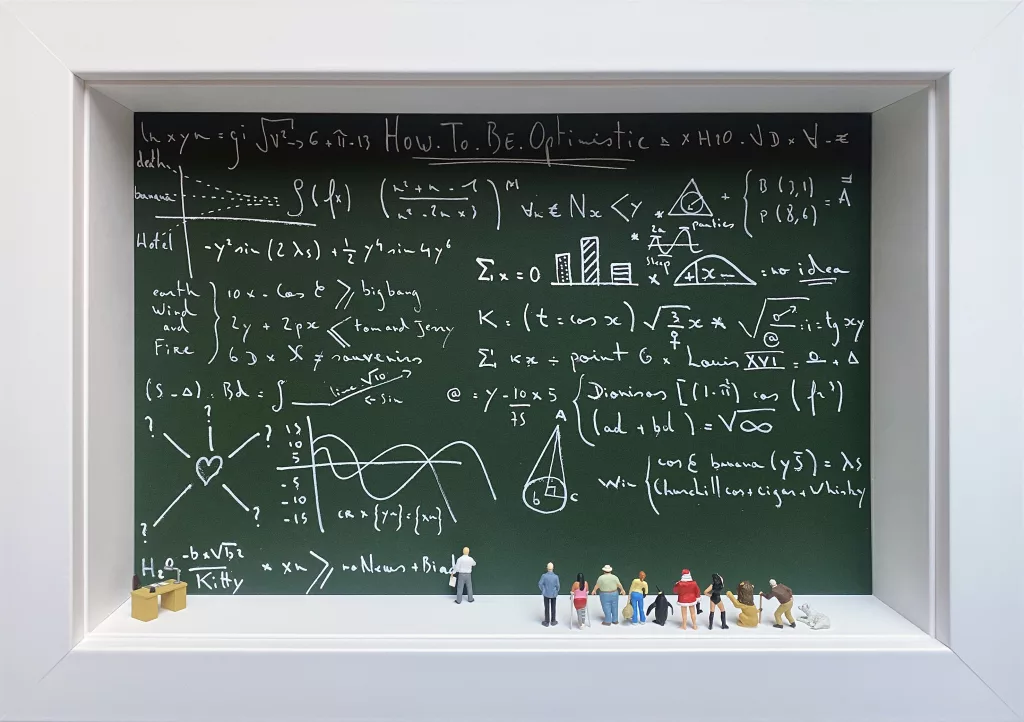 ln x y n = gi √v² → 6 + π - 13 How.To.Be.Optimistic Δ x H2O . √D x ∀ - €
death
banana
ʃ(fx)
Hotel
-y² sin (2λs) + ½ y⁴ sin 4y⁶
∀n € Nx < y
panties
B (3,1)
P (8,6)
= A
2a
sleep
Σ x = 0
+ x -
= no idea
earth
Wind
and
Fire
10x - Cos ξ ≫ big bang
2y + 2px < tom and Jerry
6 D x X ≠ souvenirs
K = (t = cos x) √3/♀ x * √♂/@ = i = tg xy
Σ Kx ÷ point G x Louis XVI = o + Δ
(S - Δ) . Bd = ʃ
line √10
← Sin
@ = y - 10 x 5
75
Dionisos [(1 - π²) cos (fx³)
(ad + bd) = √∞
?
?
?
?
?
15
10
5
-5
-10
-15
CR x {yn} = {xn}
A
b
C
Win
cos ξ banana (y5) = λs
Churchill cos + cigar + Whisky
H2O -b x √b2
Kitty
* xn ≫ no News + Biad